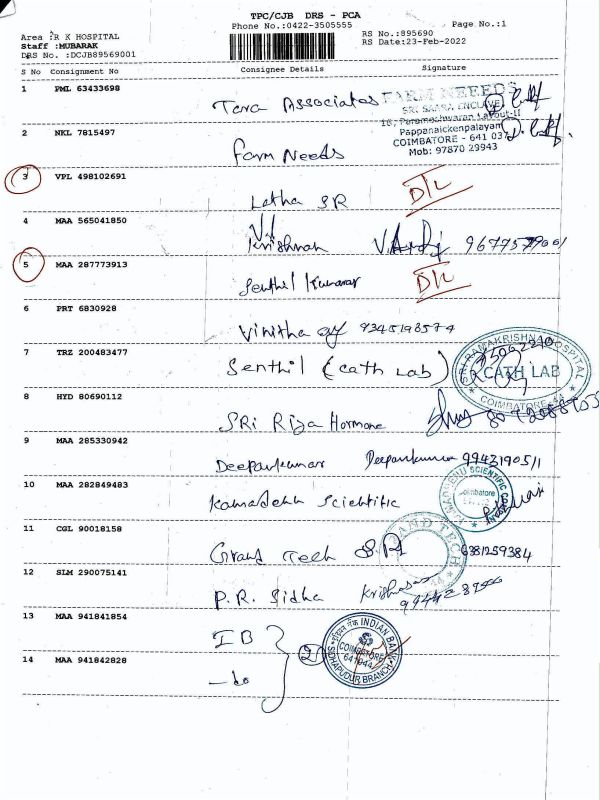 TPC/CJB DRS - PCA
Phone No.:0422-3505555
Page No.:1
Area :R K HOSPITAL
Staff :MUBARAK
DRS No. :DCJB89569001
RS No.:895690
RS Date:23-Feb-2022
S No Consignment No Consignee Details Signature
1 PML 63433698 Tara Associates
FARM NEEEDS
SRI SAARA ENCLAVE
16, Parameshwaran Layout-II
Pappanaickenpalayam
COIMBATORE - 641 037
Mob: 97870 29943
2 NKL 7815497 Farm Needs
3 VPL 498102691 Latha SR D/L
4 MAA 565041850 V.J Krishnan
5 MAA 287773913 Senthil Kumarar D/L
6 PRT 6830928 Vinitha 9345198574
7 TRZ 200483477 Senthil (cath Lab)
SRI RAMAKRISHNA HOSPITAL
CATH LAB
COIMBATORE-44
8 HYD 80690112 SRi Rija Hormone
9 MAA 285330942 Deepankumar Deepankumar 9943190511
10 MAA 282849483 Kamadehu Scientific
Coimbatore
11 CGL 90018158 Grand Tech 6381259384
GRAND TECH
12 SLM 290075141 P.R. Sidha Krishnan
13 MAA 941841854 IB
2
इंडियन बैंक INDIAN BANK
COIMBATORE
641044
SIDHAPUDUR BRANCH
14 MAA 941842828 -do